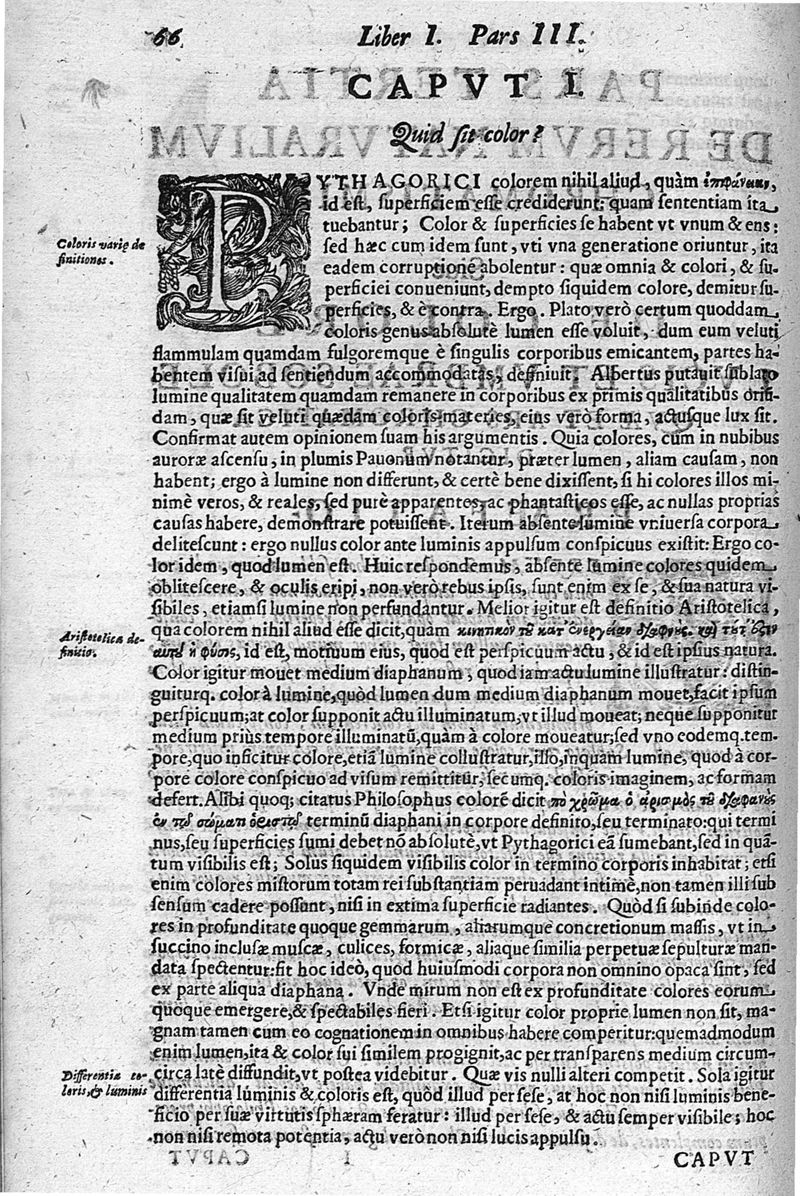 66 Liber I. Pars III.
CAPVT I.
Quid sit color?
PYTHAGORICI colorem nihil aliud, quàm ἐπιφάνειαν,
id est, superficiem esse crediderunt: quam sententiam ita
tuebantur; Color & superficies se habent vt vnum & ens:
Coloris varię de
finitiones.
sed hæc cum idem sunt, vti vna generatione oriuntur, ita
eadem corruptione abolentur: quæ omnia & colori, & su-
perficiei conueniunt, dempto siquidem colore, demitur su-
perficies, & è contra. Ergo. Plato verò certum quoddam
coloris genus absolutè lumen esse voluit, dum eum veluti
flammulam quamdam fulgoremque è singulis corporibus emicantem, partes ha-
bentem visui ad sentiendum accommodatas, definiuit. Albertus putauit sublato
lumine qualitatem quamdam remanere in corporibus ex primis qualitatibus oriun-
dam, quæ sit veluti quædam coloris materies, eius verò forma, actusque lux sit.
Confirmat autem opinionem suam his argumentis. Quia colores, cùm in nubibus
auroræ ascensu, in plumis Pauonum notantur, præter lumen, aliam causam, non
habent; ergo à lumine non differunt, & certè bene dixissent, si hi colores illos mi-
nimè veros, & reales, sed purè apparentes, ac phantasticos esse, ac nullas proprias
causas habere, demonstrare potuissent. Iterum absente lumine vniuersa corpora
delitescunt: ergo nullus color ante luminis appulsum conspicuus existit: Ergo co-
lor idem, quod lumen est. Huic respondemus, absente lumine colores quidem
oblitescere, & oculis eripi, non verò rebus ipsis, sunt enim ex se, & sua natura vi-
sibiles, etiamsi lumine non perfundantur. Melior igitur est definitio Aristotelica,
Aristotelica de-
finitio.
qua colorem nihil aliud esse dicit, quàm κινητικὸν τοῦ κατ᾽ ἐνέργειαν διαφανοῦς. καὶ τοῦτ᾽ ἐστιν
αὐτοῦ ἡ φύσις, id est, motiuum eius, quod est perspicuum actu, & id est ipsius natura.
Color igitur mouet medium diaphanum, quod iam actu lumine illustratur: distin-
guiturq. color à lumine, quòd lumen dum medium diaphanum mouet, facit ipsum
perspicuum; at color supponit actu illuminatum, vt illud moueat; neque supponitur
medium priùs tempore illuminatũ, quàm à colore moueatur; sed vno eodemq. tem-
pore, quo inficitur colore, etiã lumine collustratur, illo, inquam lumine, quod à cor-
pore colore conspicuo ad visum remittitur, secumq. coloris imaginem, ac formam
defert. Alibi quoq; citatus Philosophus colorẽ dicit
terminũ diaphani in corpore definito, seu terminato: qui termi
nus, seu superficies sumi debet nõ absolutè, vt Pythagorici eã sumebant, sed in quã-
tum visibilis est; Solus siquidem visibilis color in termino corporis inhabitat; etsi
enim colores mistorum totam rei substantiam peruadant intimè, non tamen illi sub
sensum cadere possunt, nisi in extima superficie radiantes. Quòd si subinde colo-
res in profunditate quoque gemmarum, aliarumque concretionum massis, vt in
succino inclusæ muscæ, culices, formicæ, aliaque similia perpetuæ sepulturæ man-
data spectentur: fit hoc ideò, quod huiusmodi corpora non omnino opaca sint, sed
ex parte aliqua diaphana. Vnde mirum non est ex profunditate colores eorum
quoque emergere, & spectabiles fieri. Etsi igitur color proprie lumen non sit, ma-
gnam tamen cum eo cognationem in omnibus habere comperitur: quemadmodum
enim lumen, ita & color sui similem progignit, ac per transparens medium circum-
Differentia co-
loris, & luminis
circa latè diffundit, vt postea videbitur. Quæ vis nulli alteri competit. Sola igitur
differentia luminis & coloris est, quòd illud per sese, at hoc non nisi luminis bene-
ficio per suæ virtutis sphæram feratur: illud per sese, & actu semper visibile; hoc
non nisi remota potentia, actu verò non nisi lucis appulsu.
CAPVT